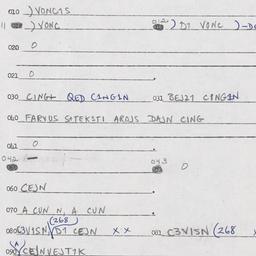 010 ) VONC1S
11 ) VONC 012 ) D1 VONC )-D
020 0
021 0
030 CING+ QED C1NG1N 031 BEJ21 C1NG1N
040 FARYUS S+TEKST1 AROJS DAJN CING
041 0
042 — 043 0
060 CEJN
070 A CUN N, A CUN
(268
080 C3V1SN) (D1 CEJN XX 081 C3V1SN (268 X
090 CEJNVEJT1K